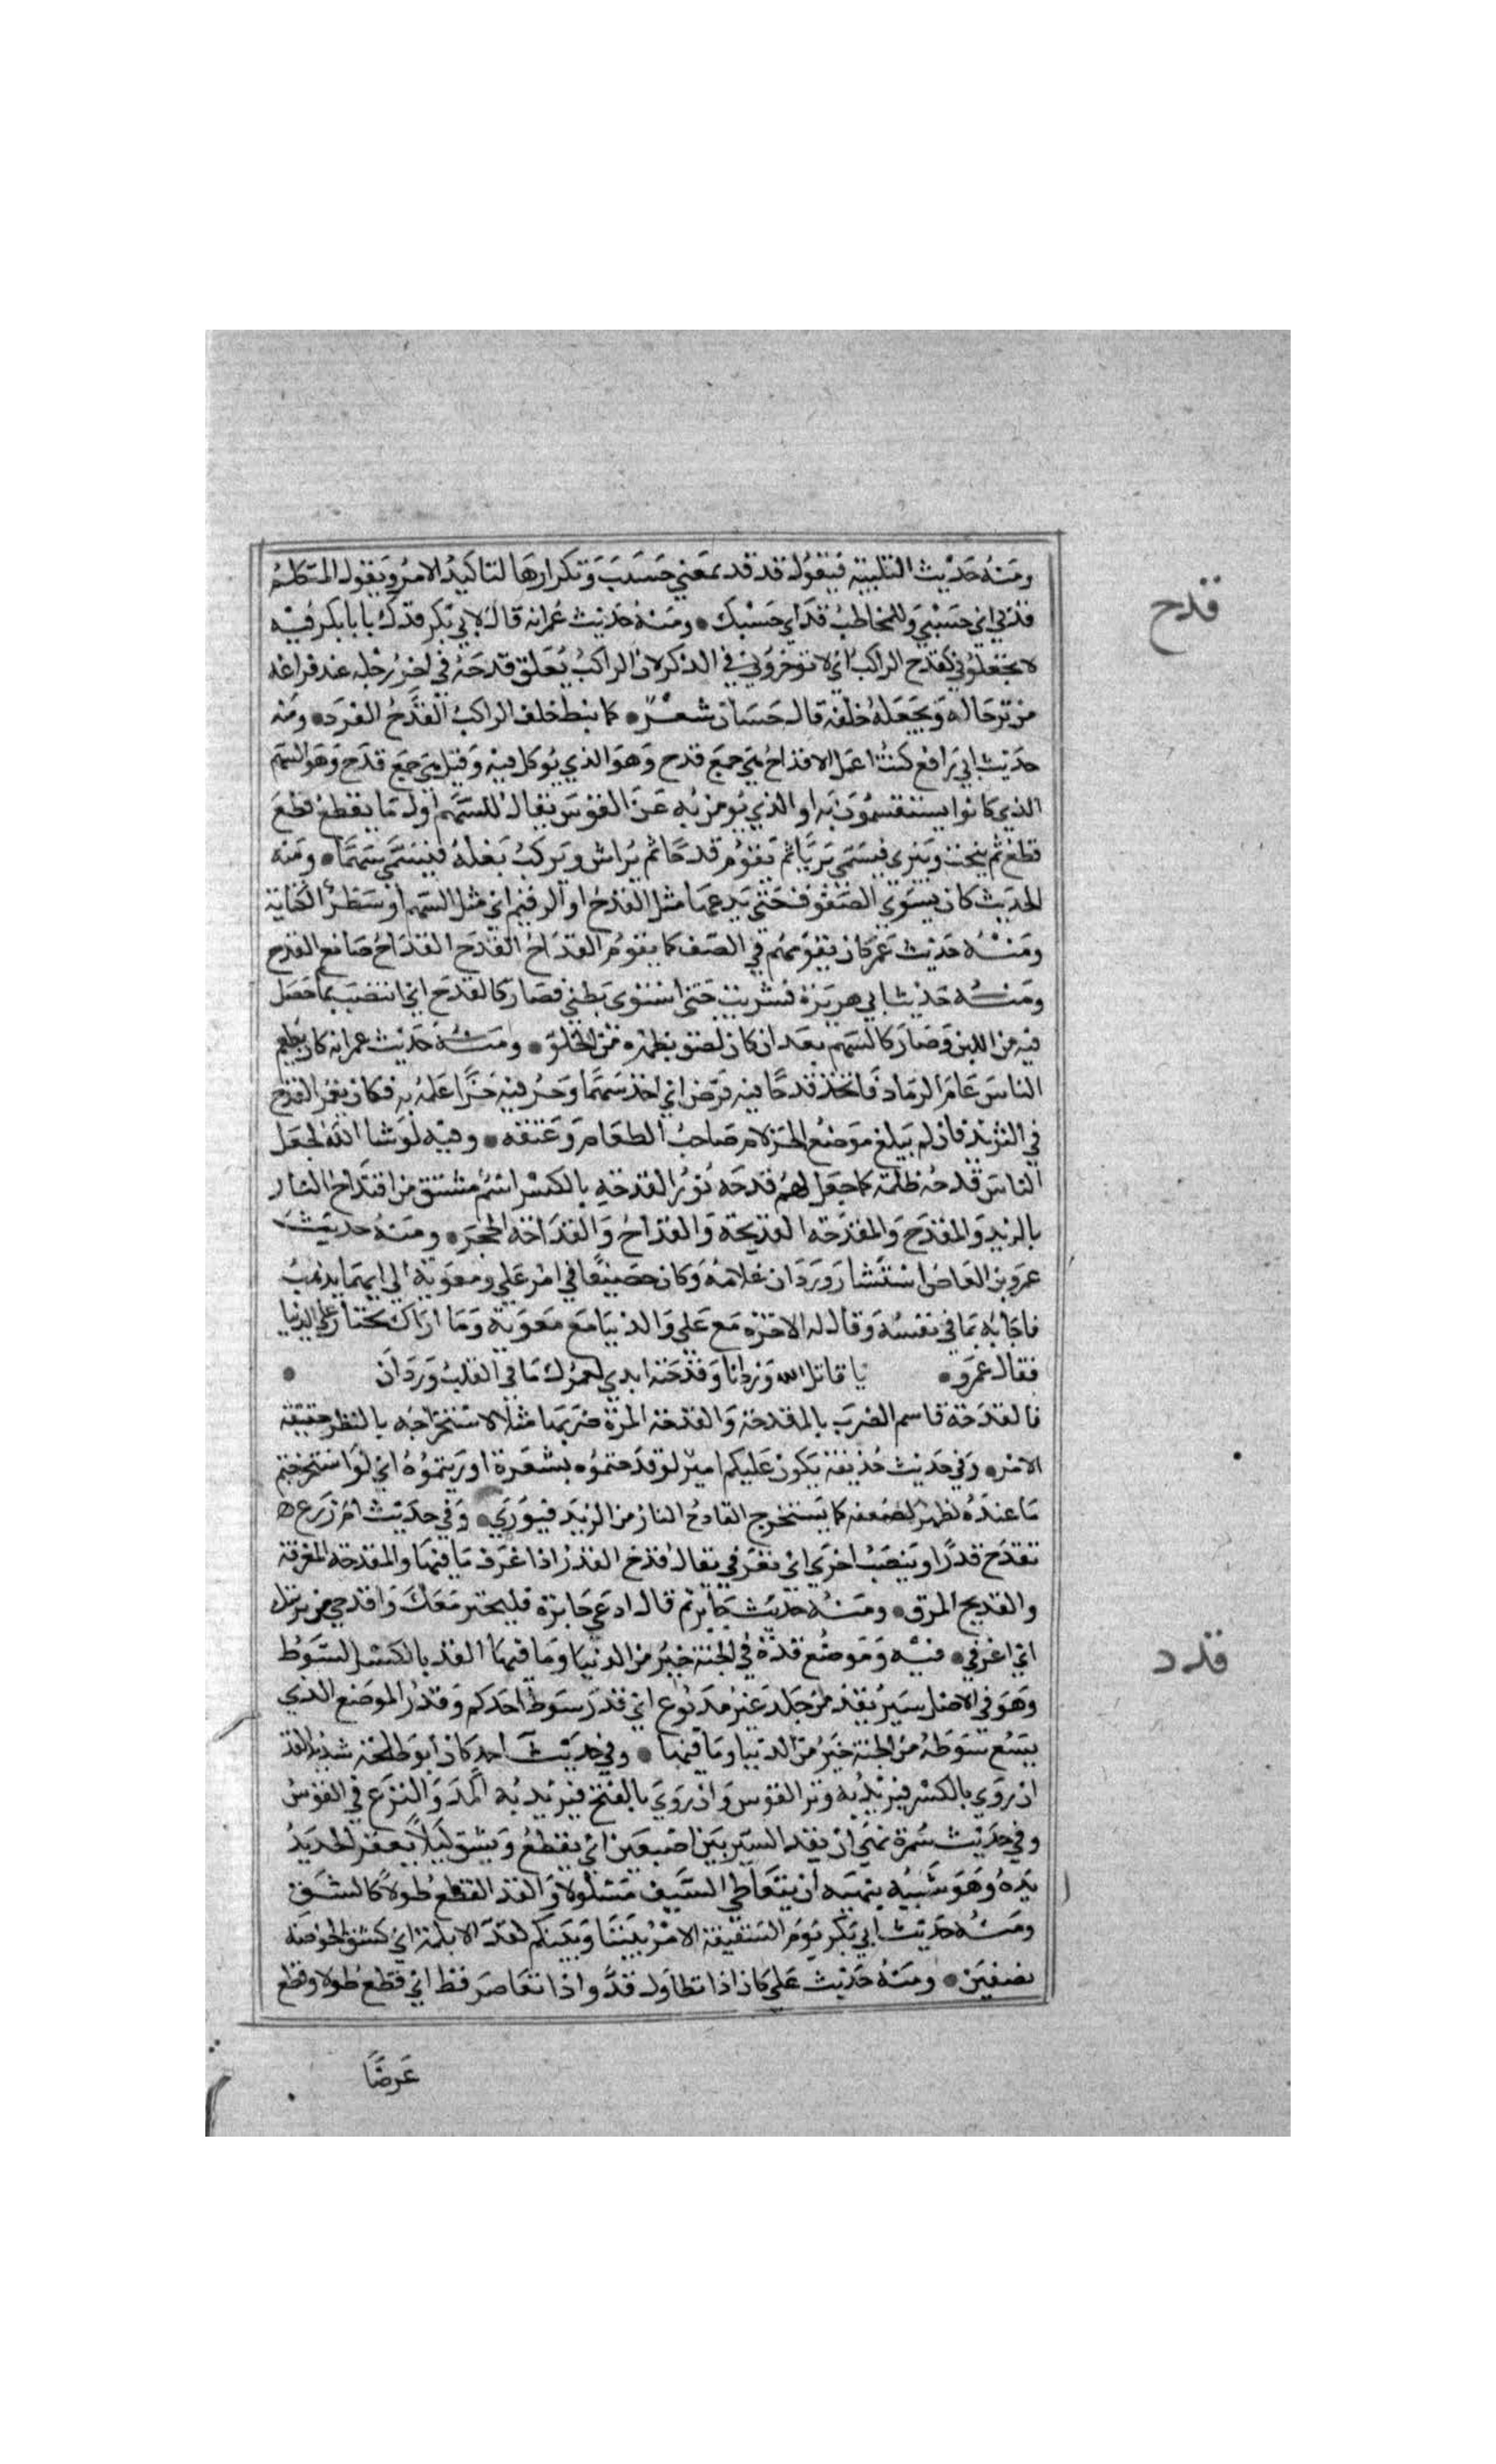 ومنه حديث التلبية فيقول قد قد بمعني حسب وتكرارها لتاكيد الامر ويقول المتكلم
قدح
قدني اي حسبي وللمخاطب قدك اي حسبك ومنه حديث عمر انه قال لابي بكر قدك يا بابكر فيه
لا تجعلوني كقدح الراكب اي لا توخروني في الذكر لان الراكب يعلق قدحه في اخر رحله عند فراغه
من ترحاله ويجعله خلفه قال حسان شعر كما نيط خلف الراكب القدح الفرد ومنه
حديث ابي رافع كنت اعمل الاقداح هي جمع قدح وهو الذي يوكل فيه وقيل هي جمع قدح وهو السهم
الذي كانوا يستقسمون به او الذي يومن به عن القوس يقال للسهم اول ما يقطع قطع
قطع ثم ينحت ويبري فيسمي بريا ثم يقوم قدحا ثم يراش ويركب نصله فيسمي سهما ومنه
الحديث كان يسوي الصفوف حتي يدعها مثل القدح او الرقيم اي مثل السهم او سطر الكتابة
ومنه حديث عمر كان يقومهم في الصف كما يقوم القداح القدح القداح صانع القدح
ومنه حديث ابي هريرة فشربت حتي استوي بطني فصار كالقدح اي انتصب بما حصل
فيه من اللبن وصار كالسهم بعد ان كان لصق بظهره من الخلو ومنه حديث عمر انه كان يطعم
الناس عام الرماد فاتخذ قدحا فيه فرض اي اخذ سهما وحز فيه حزا علمه به فكان يغمز القدح
في الثريد فان لم يبلغ موضع الحز لام صاحب الطعام وعنفه وفيه لو شا الله لجعل
الناس قدحه ظلمة كما جعل لهم قدحه نور القدحه بالكسر اسم مشتق من اقتداح النار
بالزند والمقدح والمقدحه الحديدة والقداح والقداحة الحجر ومنه حديث
عمرو بن العاص استشار وردان غلامه وكان حصيفا في امر علي ومعوية الي ايهما يذهب
فاجابه بما في نفسه وقال له الاخره مع علي والدنيا مع معوية وما اراك تختار علي الدنيا
فقال عمرو يا قاتل الله وردانا وقدحته ابدي لعمرك ما في القلب وردان
فالقدحة قاسم الضرب بالمقدحة والقدحة المرة ضربها مثلا لاستخراجه بالنظر حقيقة
الامر وفي حديث حذيفة يكون عليكم امير لو قدحتموه بشعرة اوريتموه اي لو استخرجتم
ما عنده لظهر لضعفه كما يستخرج القادح النار من الزند فيوري وفي حديث ام زرع
تقدح قدرا وينصب اخري اي تغرف يقال قدح القدر اذا غرف ما فيها والمقدحه المغرفة
والقديح المرق ومنه حديث جابر ثم قال ادعي خابزة فليختبز معك واقدحي من برمتك
قدد
اي اغرفي فيه وموضع قده في الجنة خير من الدنيا وما فيها القد بالكسر السوط
وهو في الاصل سير يقد من جلد غير مدبوغ اي قدر سوط احدكم وقدر الموضع الذي
يسع سوطه من الجنة خير من الدنيا وما فيها وفي حديث احد كان ابو طلحة شديد القد
ان روي بالكسر فيريد به وتر القوس وان روي بالفتح فيريد به المد والنزع في القوس
وفي حديث سمرة نهي ان يقد السير بين اصبعين اي يقطع ويشق ليلا يعقر الحديد
يده وهو شبيه بنهيه ان يتعاطي السيف مسلولا والقد القطع طولا كالشق
ومنه حديث ابي بكر يوم السقيفة الامر بيننا وبينكم كقد الابلمة اي كشق الخوصة
نصفين ومنه حديث علي كان اذا تطاول قد واذا تقاصر قط اي قطع طولا وقطع
عرضا